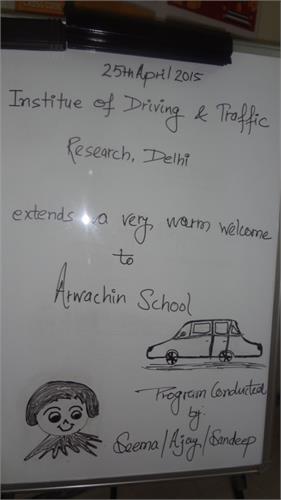 25th April 2015
Institue of Driving & Traffic
Research, Delhi
extends a very warm welcome
to
Arwachin School
Program Conducted
by:
Seema/Ajay/Sandeep